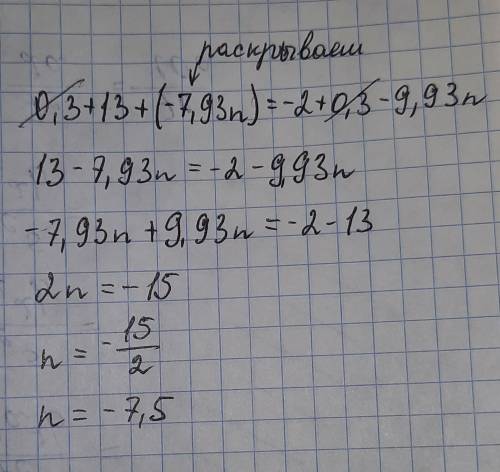 раскрываем
0,3+13+(-7,93n)=-2+0,3-9,93n
13-7,93n=-2-9,93n
-7,93n+9,93n=-2-13
2n=-15
n=-15/2
n=-7,5